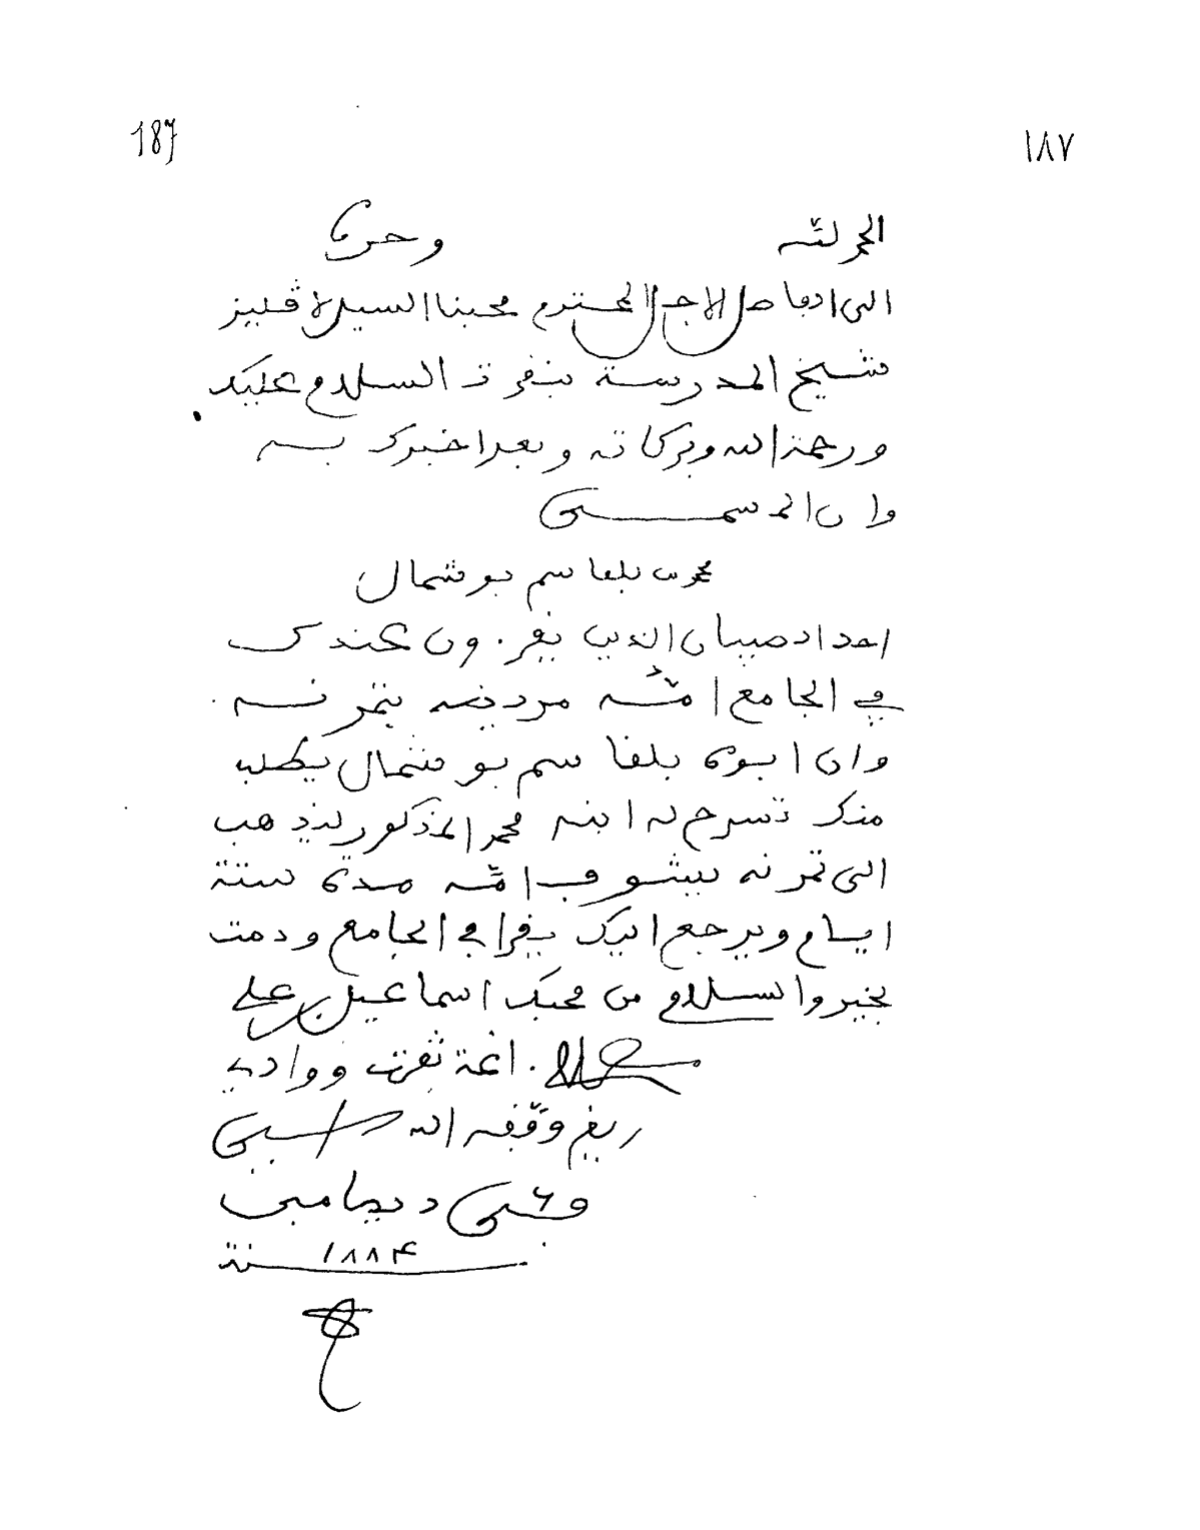 187 ١٨٧
الحمد لله وحده
الى الفاضل الاجل المحترم محبنا السيد لاڢليز
شيخ المدرسة بتڧرت السلام عليك
ورحمة الله وبركاته وبعد اخبرك به
وان المسمى
محمد بن بلڧاسم بوشمال
احد الصبيان الذين يڧرون عندك
ڢي الجامع امّه مريضه بتمرنه
وان ابوه بلڧاسم بوشمال يطلب
منك تسرح له ابنه محمد المذكور ليذهب
الى تمرنه يشوڢ امّه مدة ستة
ايام ويرجع اليك يڧرا ڢي الجامع ودمت
بخير والسلام من محبك اسماعيل بن علي
اغة تڧرت ووادي
ريغ وڢّڧه الله
دجامبر
سنة ١٨٨٤